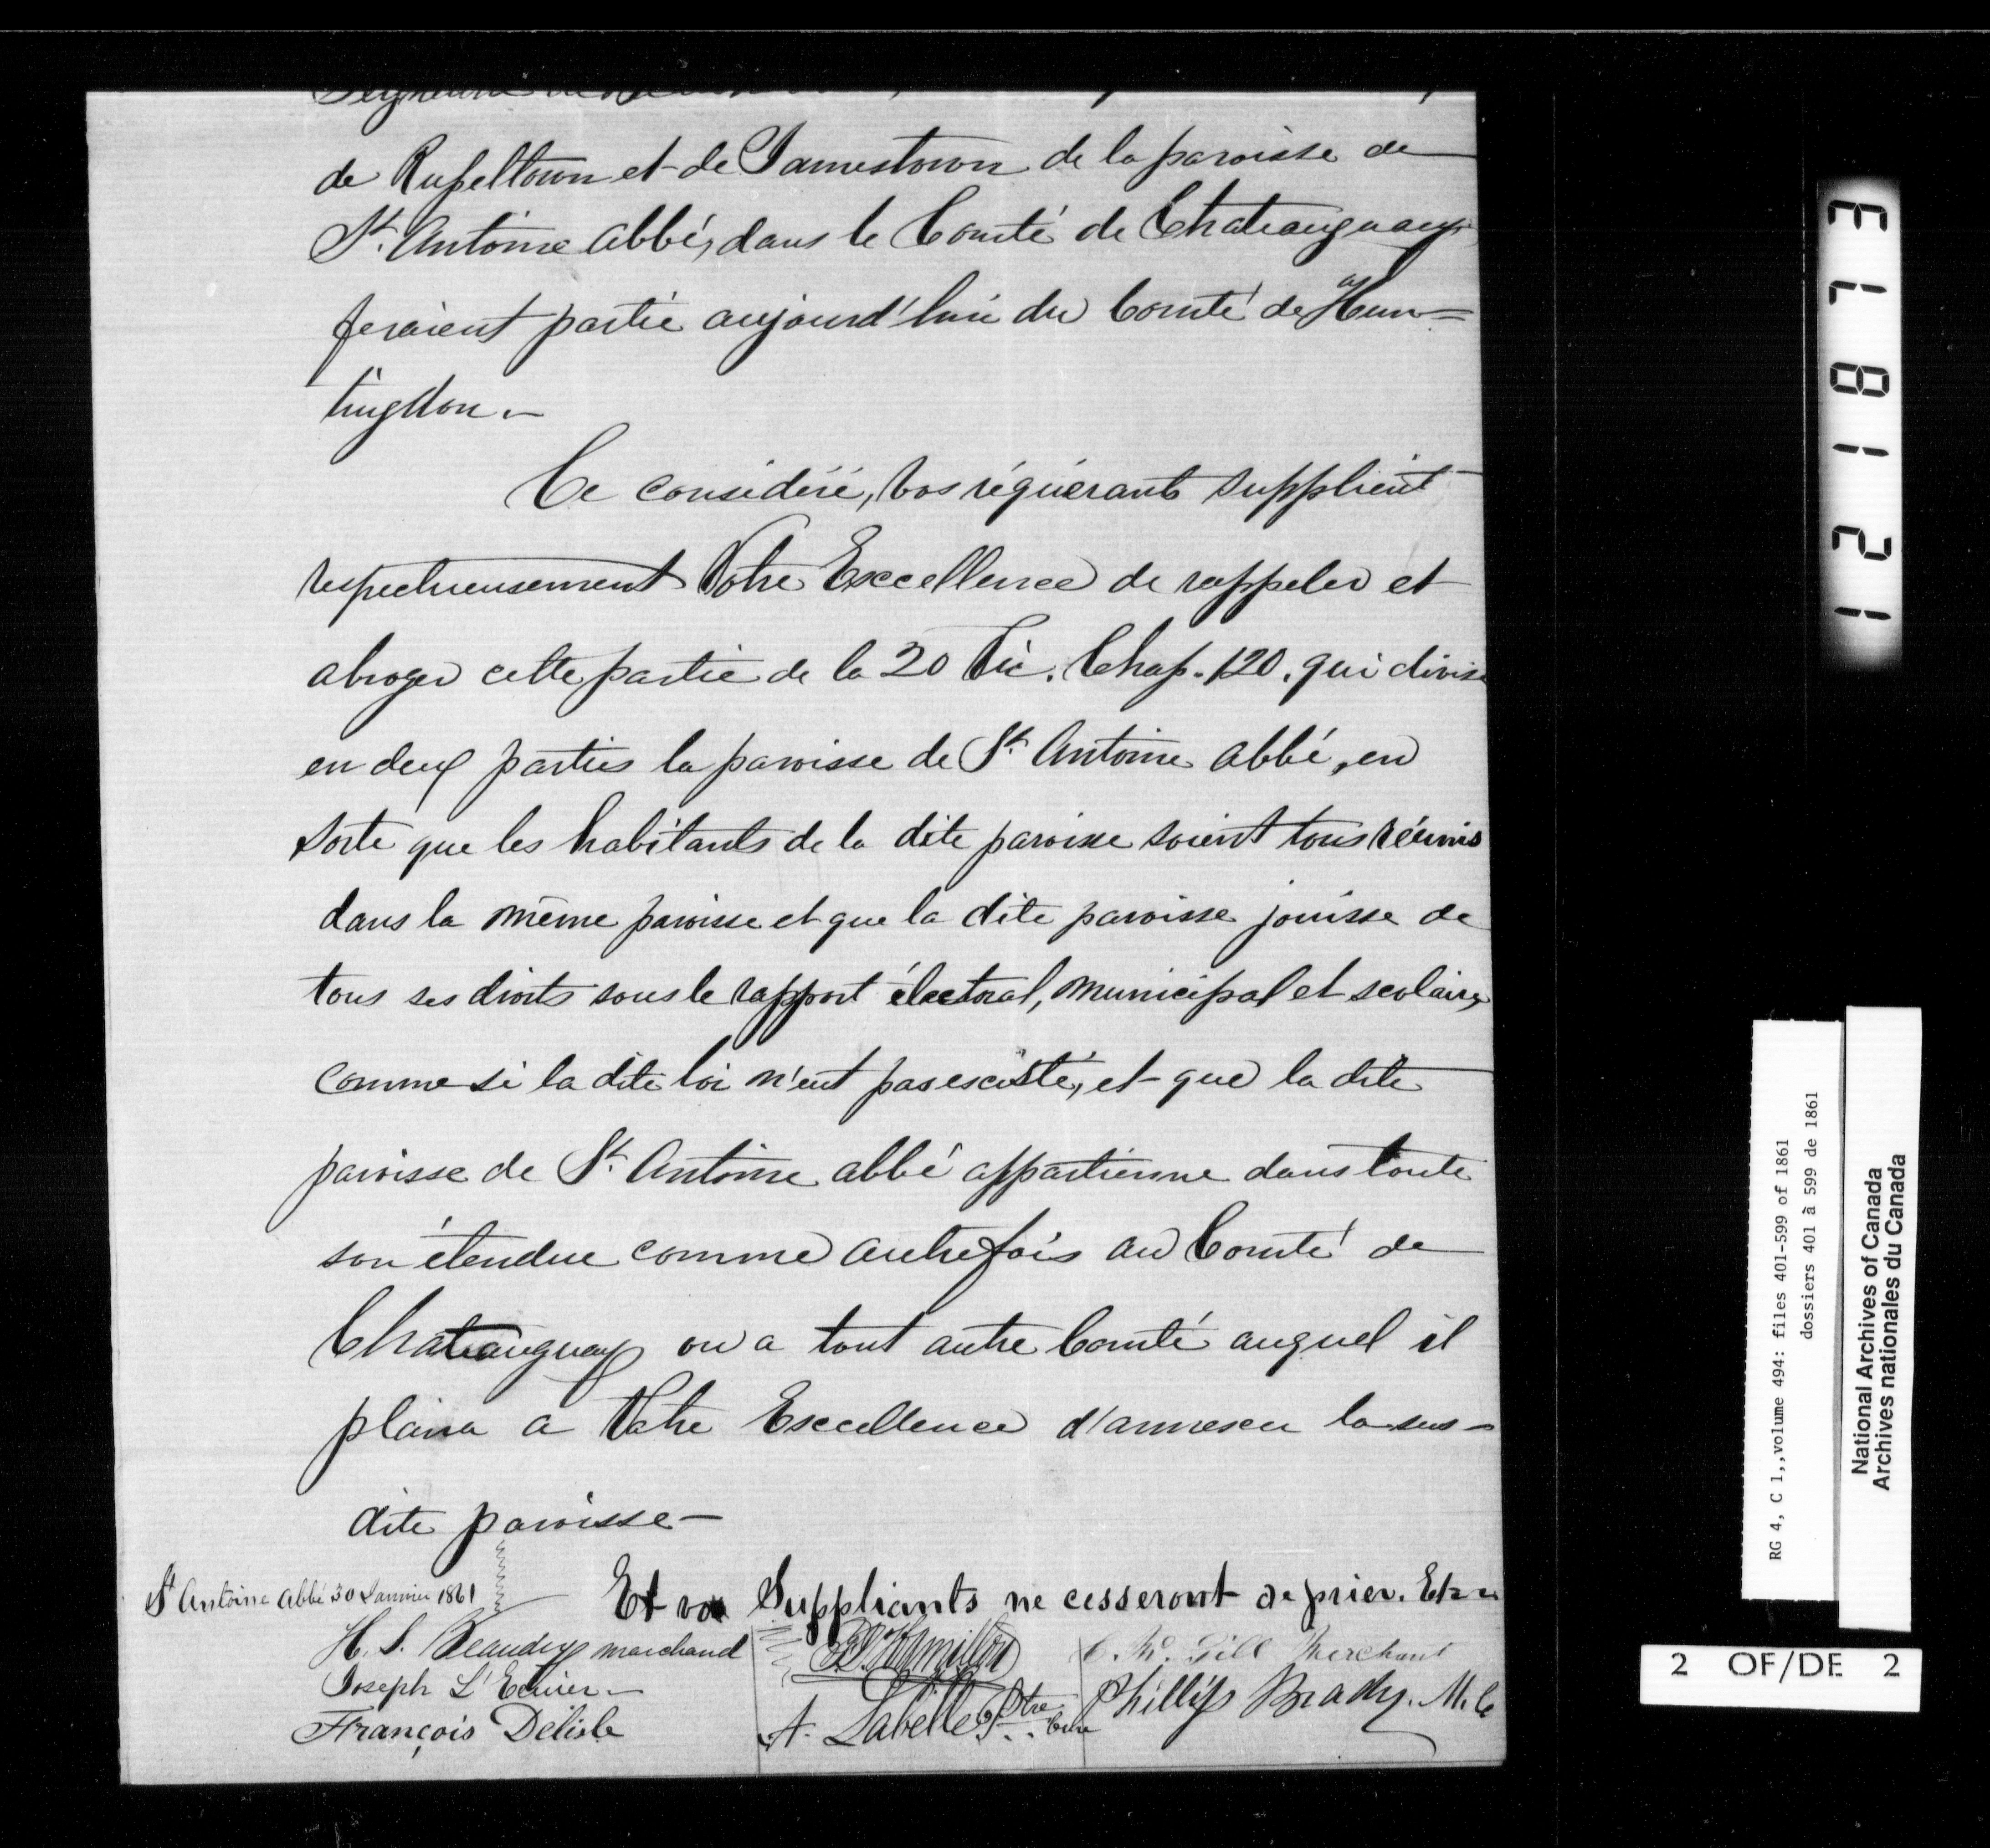 de Russeltown et de Jamestown de la paroisse de
St. Antoine abbé, dans le Comté de Chateauguay
feraient partie aujourd'hui du Comté de Hun=
tingdon.—
Ce considéré, Vos réquérants supplient
respectueusement Votre Excellence de rappeler et
abroger cette partie de la 20 Vic. Chap. 120. qui divise
en deux parties la paroisse de St. Antoine abbé, en
sorte que les habitants de la dite paroisse soient tous réunis
dans la même paroisse et que la dite paroisse jouisse de
tous ses droits sous le rapport électoral, municipal et scolaire,
comme si la dite loi n'eut pas existé, et que la dite
paroisse de St. Antoine abbé appartienne dans toute
son étendue comme autrefois au Comté de
Chateauguay ou a tout autre Comté auquel il
plaira a Votre Excellence d'annexer la sus-
dite paroisse—
St Antoine Abbé 30 Janvier 1861
Et vos Suppliants ne cesseront de prier. Etc
H. S. Beaudry marchand
Joseph L'Ecuier
François Délisle
A. Labelle Ptre Curé
C. Mc. Gill Merchant
Phillips Brady. M.C
31812 1
RG 4, C 1,,volume 494: files 401-599 of 1861
dossiers 401 à 599 de 1861
National Archives of Canada
Archives nationales du Canada
2 OF/DE 2